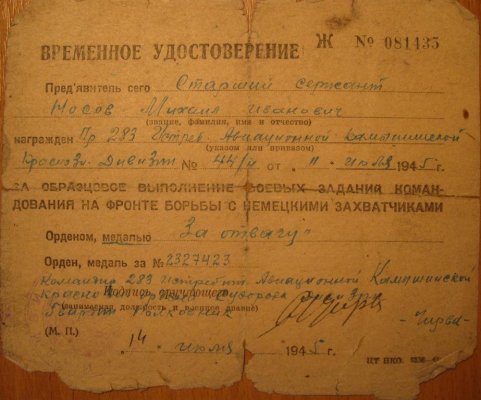 Ж № 081435
ВРЕМЕННОЕ УДОСТОВЕРЕНИЕ
Пред'явитель сего Старший сержант
Носов Михаил Иванович
(звание, фамилия, имя и отчество)
награжден Пр 283 Истреб. Авиационной Камышинской
(указом или приказом)
Краснозн. Дивизии № 44/н от "11" июля 1945 г.
ЗА ОБРАЗЦОВОЕ ВЫПОЛНЕНИЕ БОЕВЫХ ЗАДАНИЙ КОМАН-
ДОВАНИЯ НА ФРОНТЕ БОРЬБЫ С НЕМЕЦКИМИ ЗАХВАТЧИКАМИ
Орденом, медалью За отвагу"
Орден, медаль за № 2327423
Командир 283 Истребит. Авиационной Камышинской
Подпись вручающего Суворова
Гвардии Полковник
(М. П.) - Чирва -
"14" июля 1945 г.